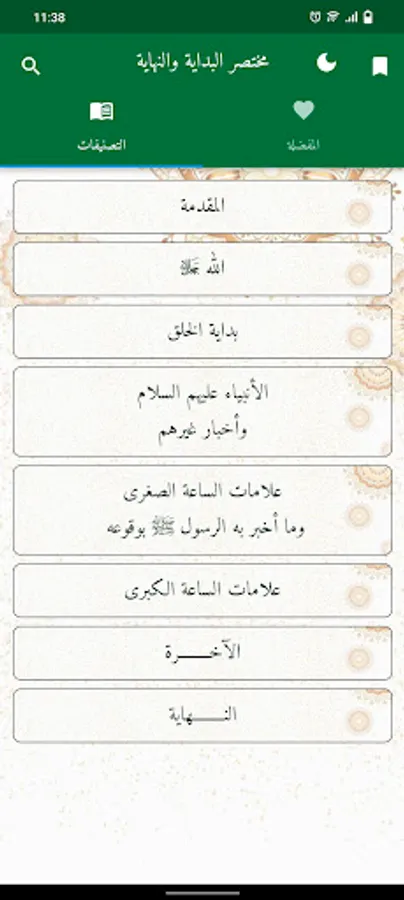 11:38
مختصر البداية والنهاية
المفضلة
التصنيفات
المقدمة
الله ﷻ
بداية الخلق
الأنبياء عليهم السلام
وأخبار غيرهم
علامات الساعة الصغرى
وما أخبر به الرسول ﷺ بوقوعه
علامات الساعة الكبرى
الآخـــــرة
النـــــهاية